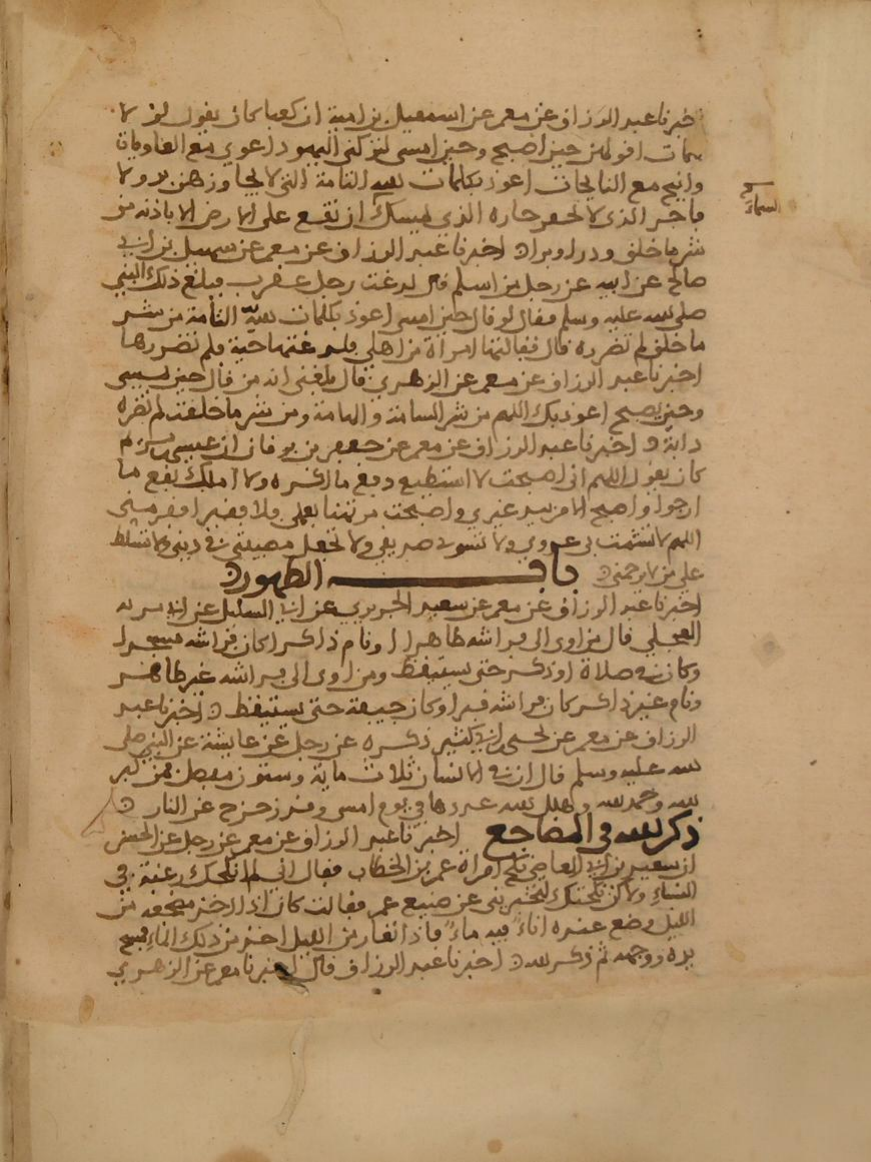 اخبرنا عبد الرزاق عن معمر عن اسمعيل بن امية ان كعبا كان يقول لولا
كلمات اقولهن حين اصبح وحين امسى لتركني اليهود اعوي مع العاويات
وانبح مع النابحات اعوذ بكلمات الله التامة التي لا يجاوزهن بر ولا
فاجر الذي لا يخفر جاره الذي يمسك ان تقع على الارض الا باذنه من
السماء
شر ما خلق وذرا وبرا ۞ اخبرنا عبد الرزاق عن معمر عن سهيل بن ابي
صالح عن ابيه عن رجل من اسلم قال لدغت رجل عقرب فبلغ ذلك النبي
صلى الله عليه وسلم فقال لو قال حين امسى اعوذ بكلمات الله التامة من شر
ما خلق لم تضرره قال فقالتها امراة من اهلي فلدغتها حية فلم تضررها
اخبرنا عبد الرزاق عن معمر عن الزهري قال بلغني انه من قال حين يمسي
وحين يصبح اعوذ بك اللهم من شر السامة والهامة ومن شر ما خلقت لم تضره
دابة ۞ اخبرنا عبد الرزاق عن معمر عن جعفر بن برقان ان عيسى بن مريم
كان يقول اللهم اني اصبحت لا استطيع دفع ما اكره ولا املك نفع ما
ارجوا واصبح الامر بيد غيري واصبحت مرتهنا بعملي ولا فقير افقر مني
اللهم لا تشمت بي عدوي ولا تسوء بي صديقي ولا تجعل مصيبتي في ديني ولا تسلط
علي من لا يرحمني ۞ باب الطهور ۞
اخبرنا عبد الرزاق عن معمر عن سعيد الجريري عن ابي السليل عن
العجلي قال من اوى الى فراشه طاهرا ونام ذاكرا كان فراشه مسجدا
وكان في صلاة او ذكر حتى يستيقظ ومن اوى الى فراشه غير طاهر
ونام غير ذاكر كان فراشه قبرا وكان جيفة حتى يستيقظ ۞ اخبرنا عبد
الرزاق عن معمر عن يحيى بن ابي كثير ذكره عن رجل عن عايشة عن النبي صلى
الله عليه وسلم قال ان في الانسان ثلاث ماية وستون مفصل فمن كبر
الله وحمد الله وهلل الله عددها في يوم امسى وقد زحزح عن النار ۞
ذكر الله في المضاجع اخبرنا عبد الرزاق عن معمر عن رجل عن الحسن
ان سعيد بن ابي العاصي نكح امراة عمر بن الخطاب فقال اني لم انكحك رغبة في
النساء ولاكن نكحتك لتخبريني عن صنيع عمر فقالت كان اذا اخذ مضجعه من
الليل وضع عنده اناء فيه ماء فاذا تعار من الليل اخذ من ذلك الماء فمسح
يده ووجهه ثم ذكر الله ۞ اخبرنا عبد الرزاق قال اخبرنا معمر عن الزهري